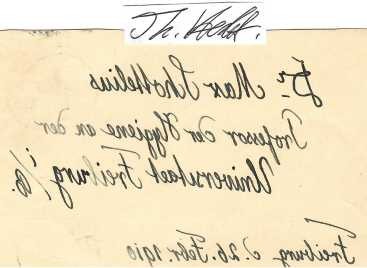 Th.
Dr. Max Schottelius
Professor der Hygiene an der
Universitaet Freiburg i/B.
Freiburg d. 26. Febr. 1910